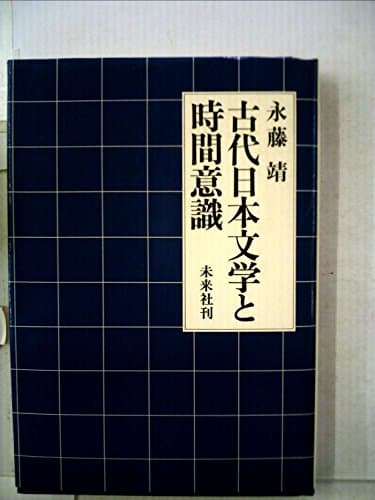 永藤 靖
古代日本文学と
時間意識
未来社刊